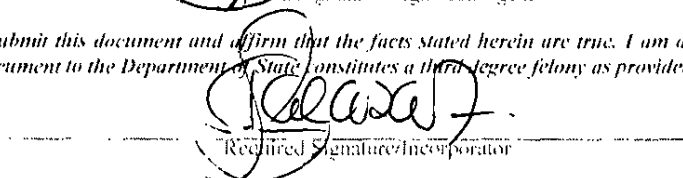 ubmit this document and affirm that the facts stated herein are true. I am a
cument to the Department of State constitutes a third degree felony as provide
Required Signature/Incorporator